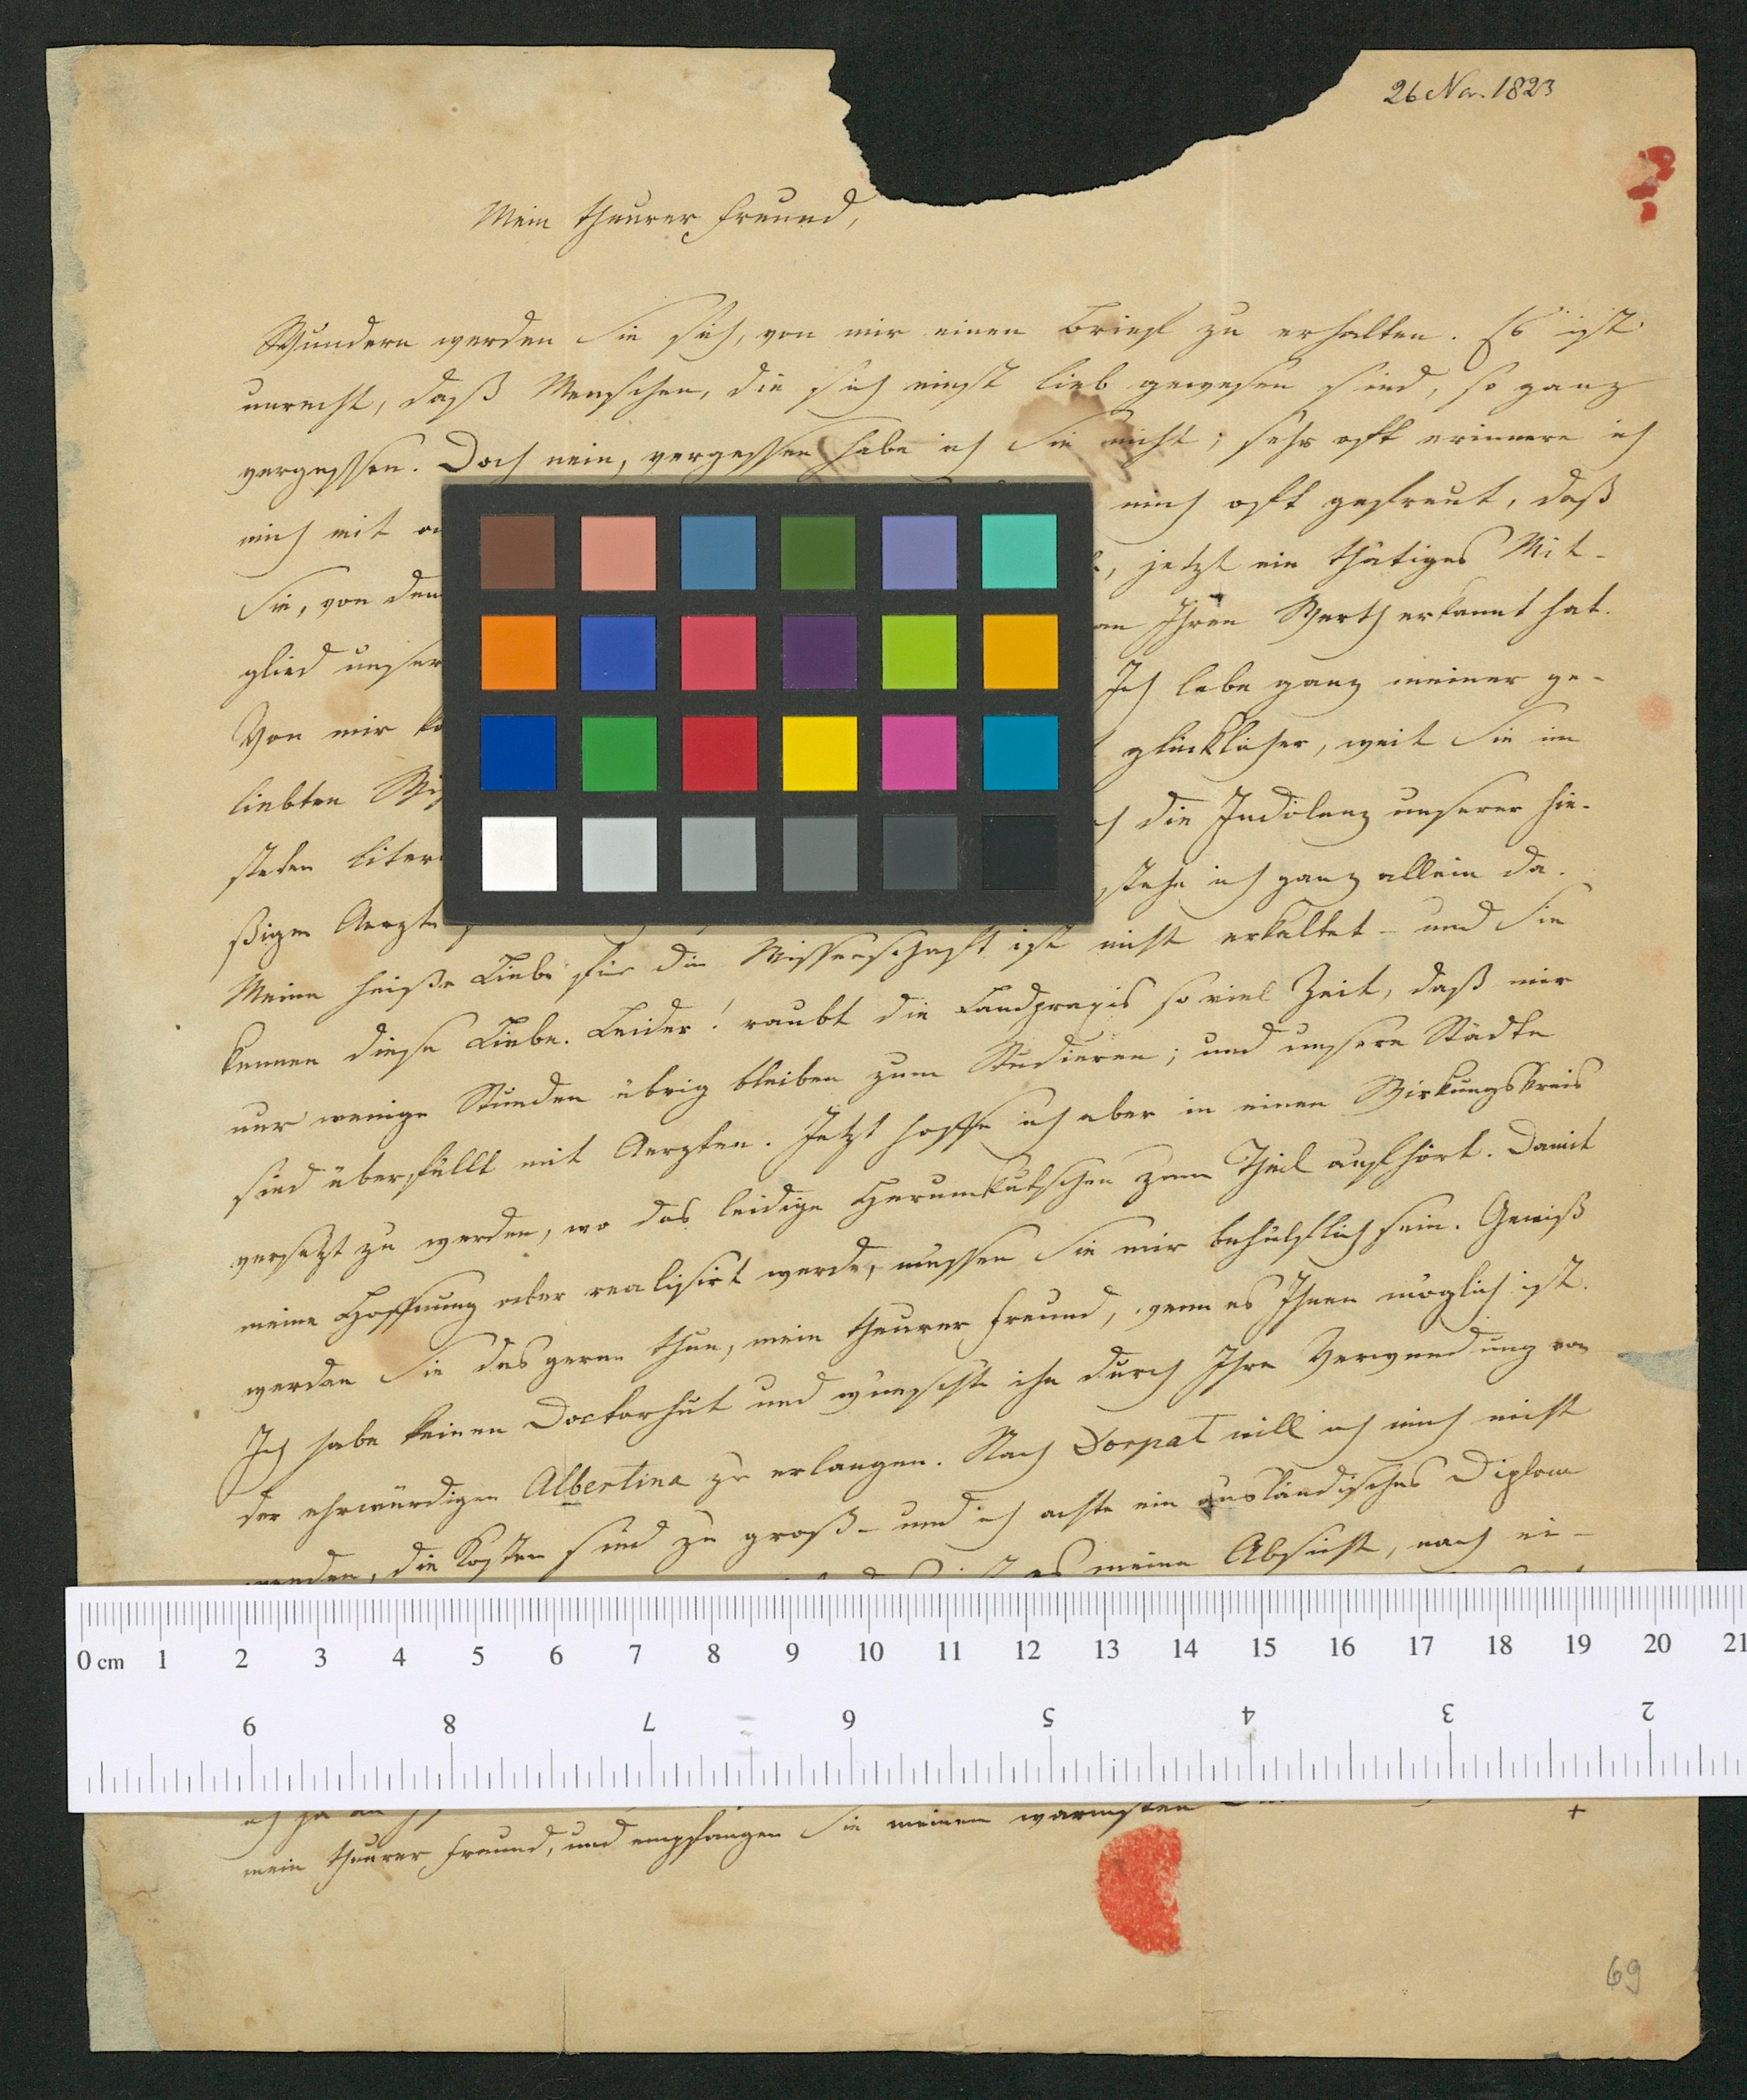 26 Nov. 1823
Mein theurer Freund,
Wundern werden Sie sich, von mir einen Brief zu erhalten. Es ist
unrecht, daß Menschen, die sich einst lieb gewesen sind, so ganz
vergessen. Doch nein, vergessen habe ich Sie nicht; sehr oft erinnere ich
mich mit
mich oft gefreut, daß
Sie, von dem
jetzt ein thätiges Mit-
glied unser
Ihren Werth erkannt hat.
Von mir
Ich lebe ganz meiner ge-
liebten
glücklicher, weit Sie im
steten
die Indolenz unserer hie-
ßigen Aerzte
stehe ich ganz allein da.
Meine heiße Liebe für die Wissenschaft ist nicht erkaltet – und Sie
kennen diese Liebe. Leider! raubt die Landpraxis so viel Zeit, daß mir
nur wenige Stunden übrig bleiben zum Studieren; und unsere Städte
sind überfüllt mit Aerzten. Jetzt hoffe ich aber in einen Wirkungskreis
versetzt zu werden, wo das leidige Herumkutschen zum Theil aufhört. Damit
meine Hoffnung aber realisirt werde, müssen Sie mir behülflich sein. Gewiß
werden Sie das gerne thun, mein theurer Freund, wenn es Ihnen möglich ist.
Ich habe keinen Doctorhut und wünschte ihn durch Ihre Verwendung von
der ehrwürdigen Albertina zu erlangen. Nach Dorpat will ich mich nicht
wenden, die Kosten sind zu groß – und ich achte ein ausländisches Diplom
es meine Absicht, nach ei-
0 cm 1 2 3 4 5 6 7 8 9 10 11 12 13 14 15 16 17 18 19 20 21
9 8 7 6 5 4 3 2
mein theurer Freund, und empfangen Sie meinen warmsten
69